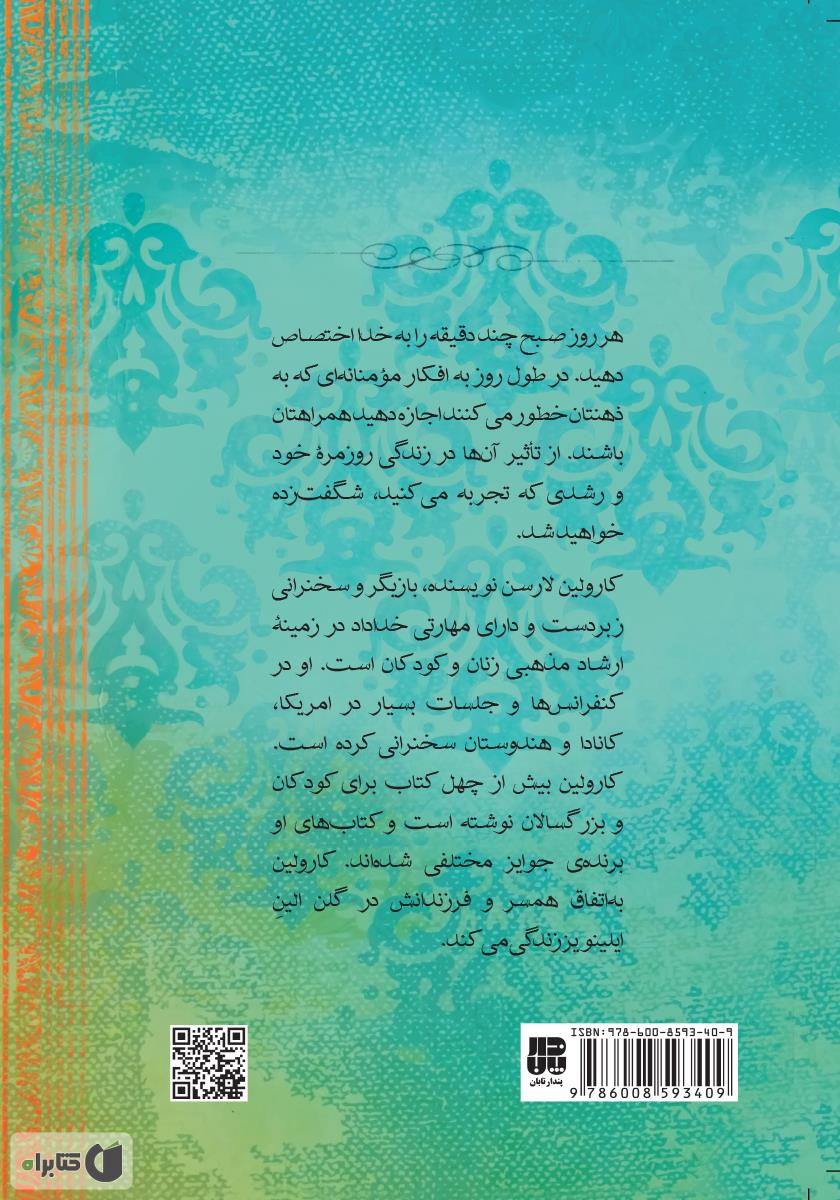 هر روز صبح چند دقیقه را به خدا اختصاص
دهید. در طول روز به افکار مؤمنانه‌ای که به
ذهنتان خطور می‌کنند اجازه دهید همراهتان
باشند. از تأثیر آن‌ها در زندگی روزمرهٔ خود
و رشدی که تجربه می‌کنید، شگفت‌زده
خواهید شد.
کارولین لارسن نویسنده، بازیگر و سخنرانی
زبردست و دارای مهارتی خداداد در زمینهٔ
ارشاد مذهبی زنان و کودکان است. او در
کنفرانس‌ها و جلسات بسیار در امریکا،
کانادا و هندوستان سخنرانی کرده است.
کارولین بیش از چهل کتاب برای کودکان
و بزرگسالان نوشته است و کتاب‌های او
برنده‌ی جوایز مختلفی شده‌اند. کارولین
به‌اتفاق همسر و فرزندانش در گلن الینِ
ایلینویز زندگی می‌کند.
ISBN: 978-600-8593-40-9
پندار تابان
9 786008 593409
کتابراه